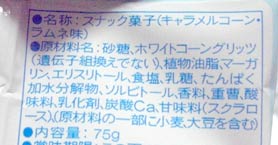 ●名称：スナック菓子(キャラメルコーン・
ラムネ味)
●原材料名：砂糖、ホワイトコーングリッツ
(遺伝子組換えでない)、植物油脂、マーガ
リン、エリスリトール、食塩、乳糖、たんぱく
加水分解物、ソルビトール、香料、重曹、酸
味料、乳化剤、炭酸Ca、甘味料(スクラロ
ース)、(原材料の一部に小麦、大豆を含む)
●内容量：75g